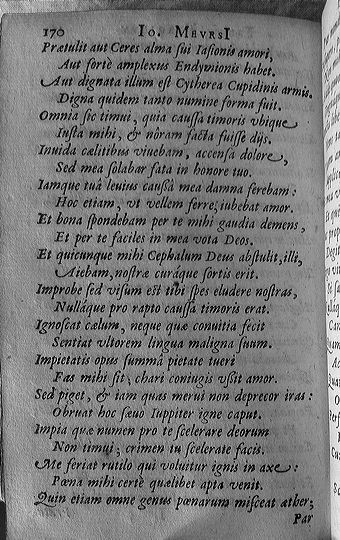 170 IO. MEVRSI
Prætulit aut Ceres alma sui Iasionis amori,
Aut fortè amplexus Endymionis habet.
Aut dignata illum est Cytherea Cupidinis armis.
Digna quidem tanto numine forma fuit.
Omnia sic timui, quia caussa timoris vbique
Iusta mihi, & nôram facta fuisse dijs.
Inuida cælitibus viuebam, accensa dolore,
Sed mea solabar fata in honore tuo.
Iamque tuâ leuius caussâ mea damna ferebam:
Hoc etiam, vt vellem ferre, iubebat amor.
Et bona spondebam per te mihi gaudia demens,
Et per te faciles in mea vota Deos.
Et quicunque mihi Cephalum Deus abstulit, illi,
Aiebam, nostræ curáque sortis erit.
Improbe sed visum est tibi spes eludere nostras,
Nulláque pro rapto caussa timoris erat.
Ignoscat cælum, neque quæ conuitia fecit
Sentiat vltorem lingua maligna suum.
Impietatis opus summâ pietate tueri
Fas mihi sit, chari coniugis vssit amor.
Sed piget, & iam quas merui non deprecor iras:
Obruat hoc sæuo Iuppiter igne caput.
Impia quæ numen pro te scelerare deorum
Non timui, crimen tu scelerate facis.
Me feriat rutilo qui voluitur ignis in axe:
Pœna mihi certè quælibet apta venit.
Quin etiam omne genus pœnarum misceat æther;
Par